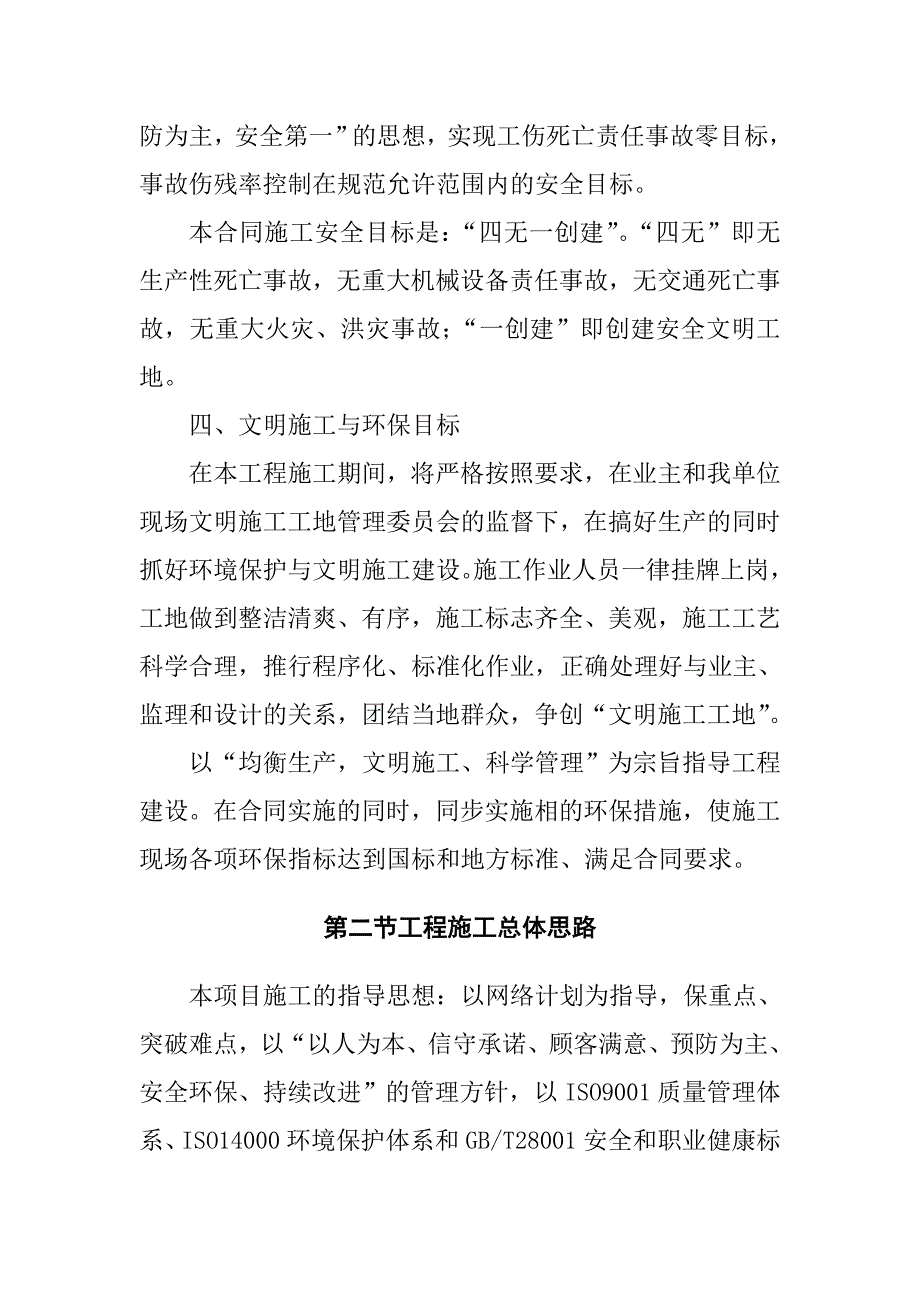 防为主，安全第一”的思想，实现工伤死亡责任事故零目标，
事故伤残率控制在规范允许范围内的安全目标。
本合同施工安全目标是：“四无一创建”。“四无”即无
生产性死亡事故，无重大机械设备责任事故，无交通死亡事
故，无重大火灾、洪灾事故；“一创建”即创建安全文明工
地。
四、文明施工与环保目标
在本工程施工期间，将严格按照要求，在业主和我单位
现场文明施工工地管理委员会的监督下，在搞好生产的同时
抓好环境保护与文明施工建设。施工作业人员一律挂牌上岗，
工地做到整洁清爽、有序，施工标志齐全、美观，施工工艺
科学合理，推行程序化、标准化作业，正确处理好与业主、
监理和设计的关系，团结当地群众，争创“文明施工工地”。
以“均衡生产，文明施工、科学管理”为宗旨指导工程
建设。在合同实施的同时，同步实施相的环保措施，使施工
现场各项环保指标达到国标和地方标准、满足合同要求。
第二节工程施工总体思路
本项目施工的指导思想：以网络计划为指导，保重点、
突破难点，以“以人为本、信守承诺、顾客满意、预防为主、
安全环保、持续改进”的管理方针，以 ISO9001 质量管理体
系、ISO14000 环境保护体系和 GB/T28001 安全和职业健康标